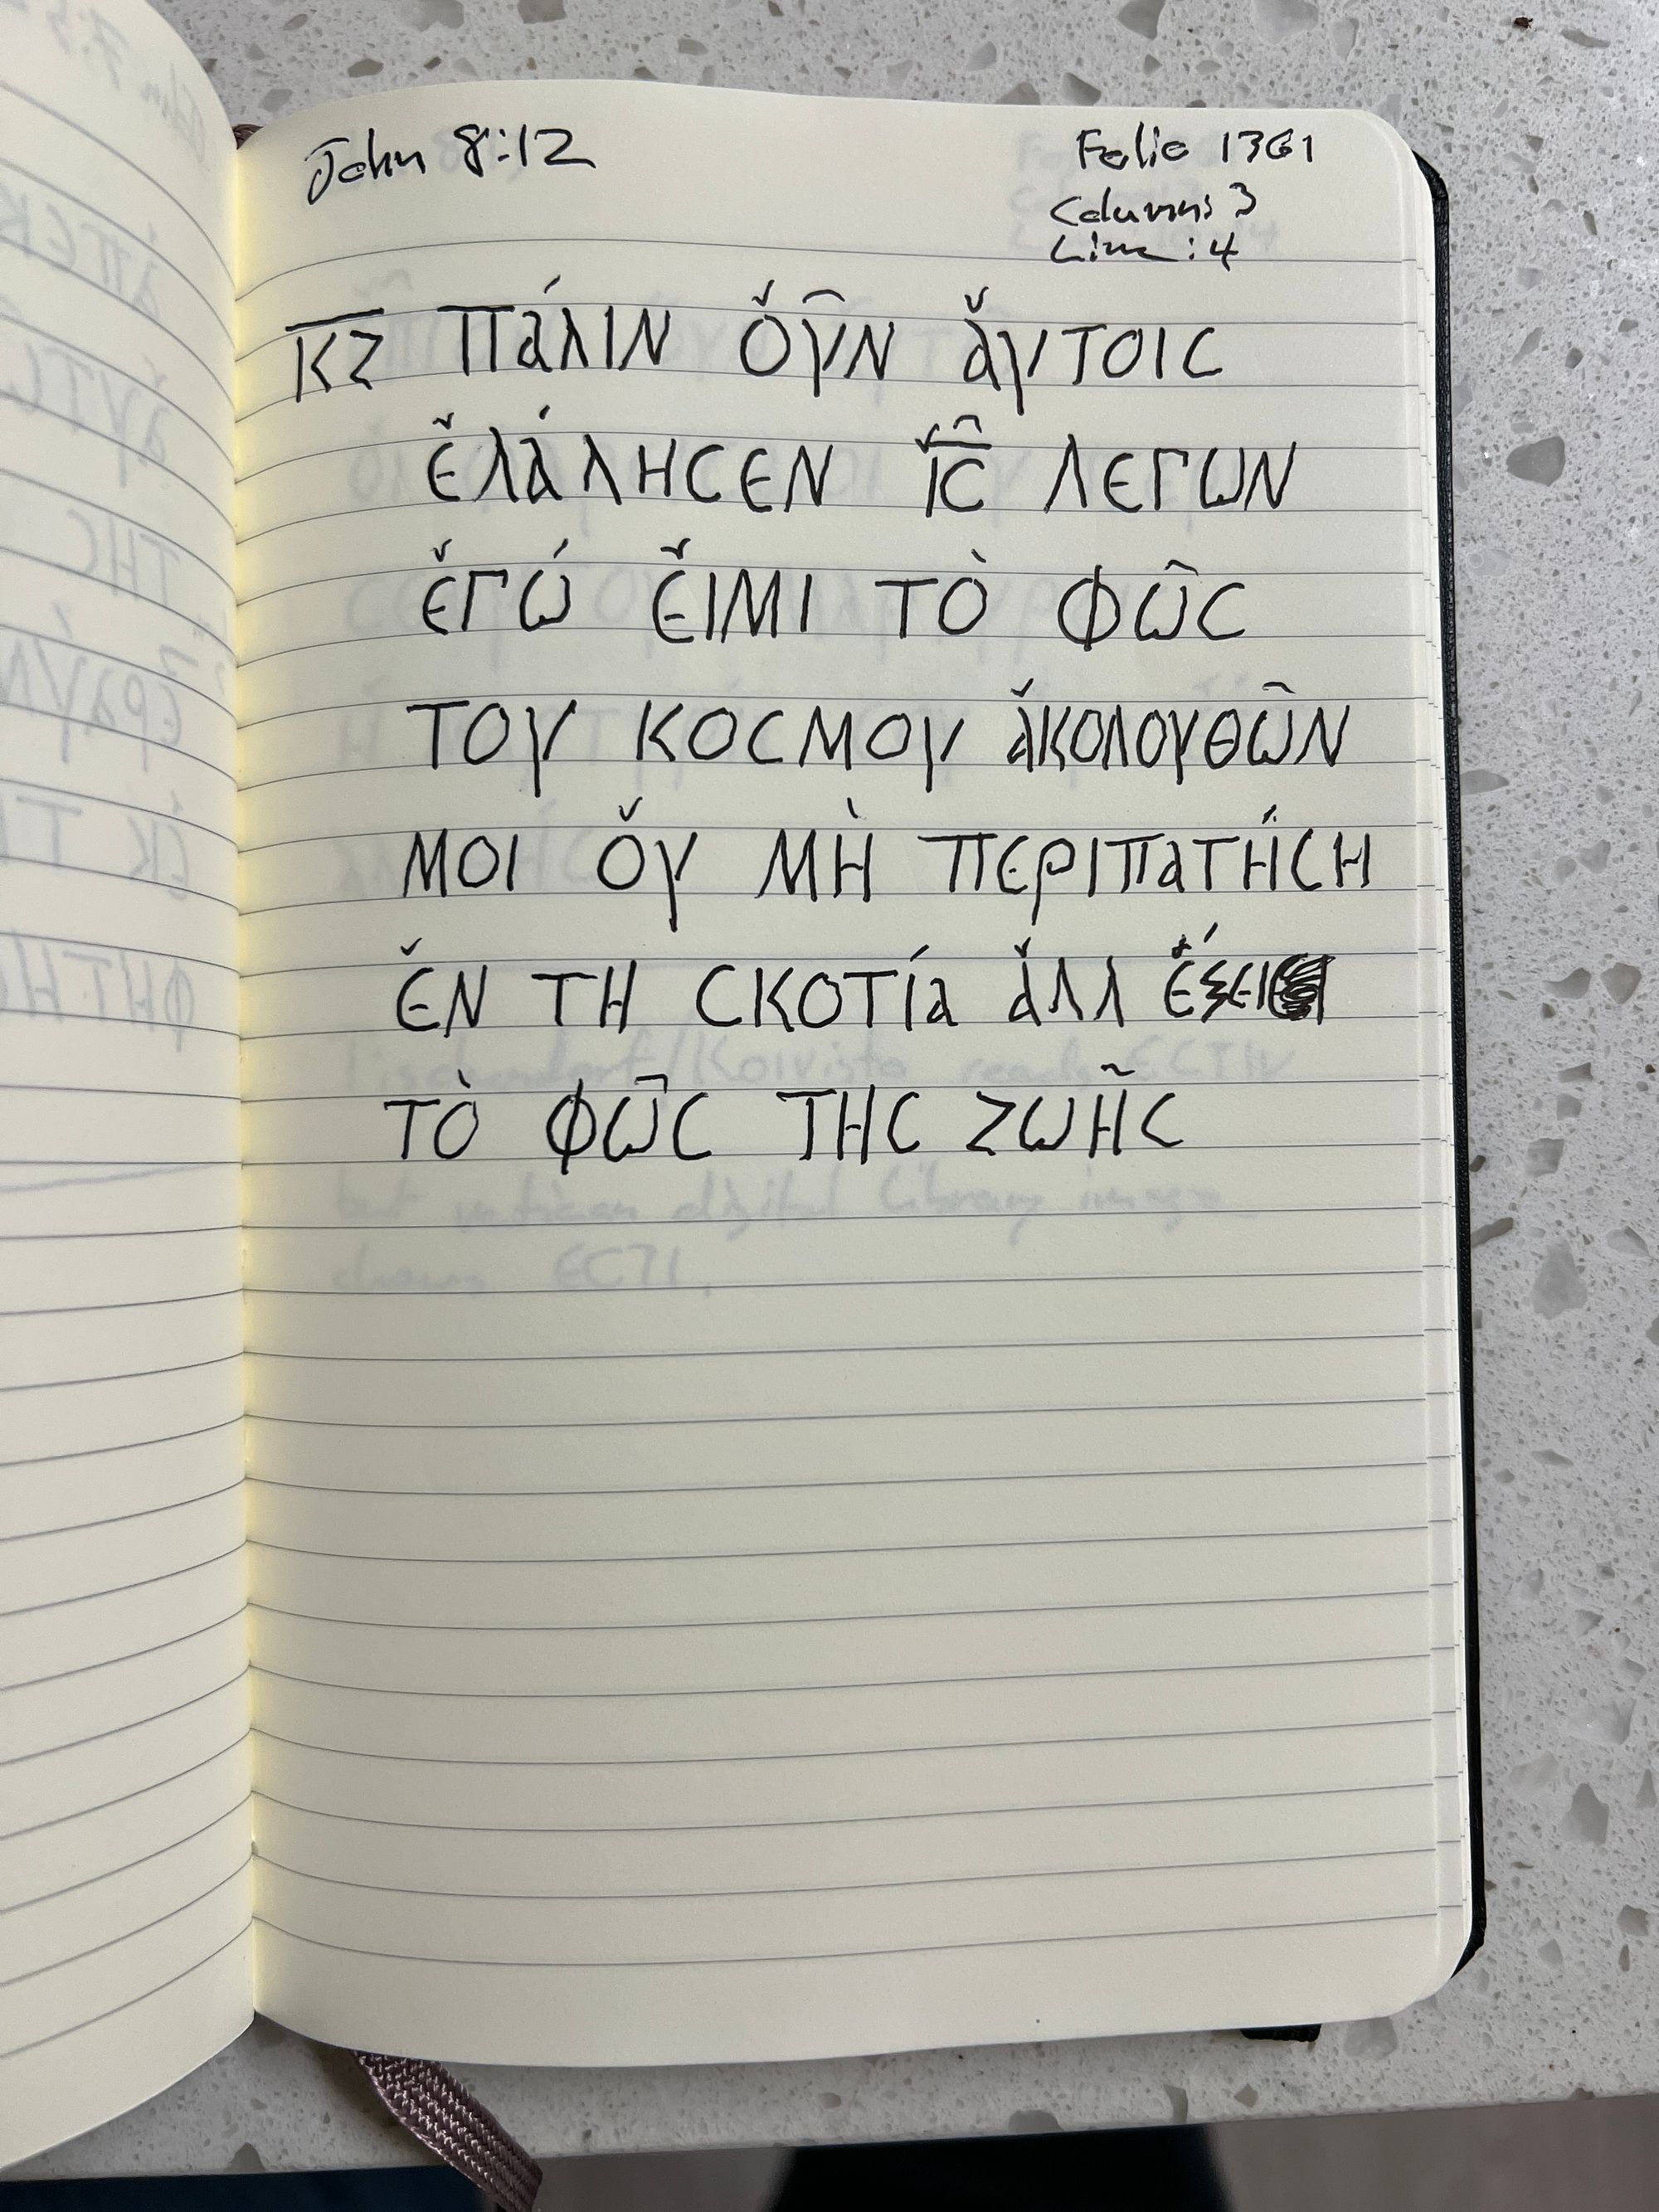 John 8:12
Folio 1361
Column: 3
Line: 4
Κ̅Ζ̅ ΠάΛΙΝ ὈῦΝ ἀυΤΟΙϹ
ἐΛάΛΗϹΕΝ Ἰ̅Ϲ͂̅ ΛΕΓΩΝ
ἐΓώ ἘΙΜΙ Τὸ ΦῶϹ
ΤΟΥ ΚΟϹΜΟΥ ἀΚΟΛΟΥΘῶΝ
ΜΟΙ ὀΥ Μὴ ΠΕΡΙΠαΤήϹΗ
ἐΝ ΤΗ ϹΚΟΤία ἀΛΛ
Τὸ ΦῶϹ ΤΗϹ ΖΩῆϹ